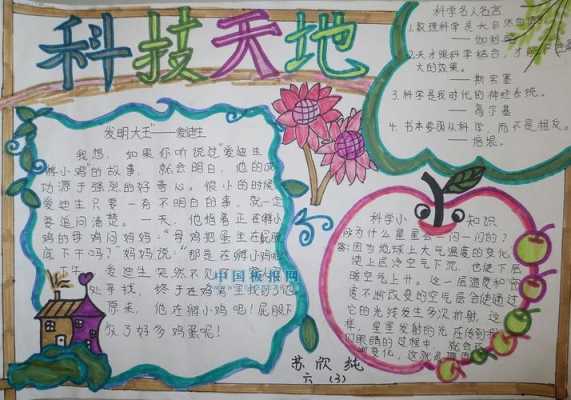 科技天地
科学名人名言
1.数理科学是大自
——伽利
2.天才跟科学结合，才
大的效果。
——斯宾塞
3.科学是我时代的神经系统。
——高尔基
4.书本要从科学，而不是相反。
——培根。
发明大王"——爱迪生
我想，如果你听说过"爱迪生
孵小鸡"的故事，就会明白，他的成
功源于强烈的好奇心。很小的时候
爱迪生只要一有不明白的事，就一定
要追问清楚。一天，他指着正在孵小
鸡的母鸡问妈妈："母鸡把蛋坐在屁股
底下干吗？"妈妈说："那是在孵小鸡呢
午，爱迪生突然不见了
处寻找，终于在鸡窝里找到了他
原来，他在孵小鸡吧！屁股下
放了好多鸡蛋呢！
中国板报网
科学小知识
为什么星星会一闪一闪的？
答：因为地球上大气温度的变化，
使上层冷空气下沉，也使下层
暖空气上升。这一层温度和密
度不断改变的空气层会使通过
它的光线发生多次折射，这
样，星星发射的光在传到
们眼睛的过程中，就会
变化，这就
苏欣纯
六（3）